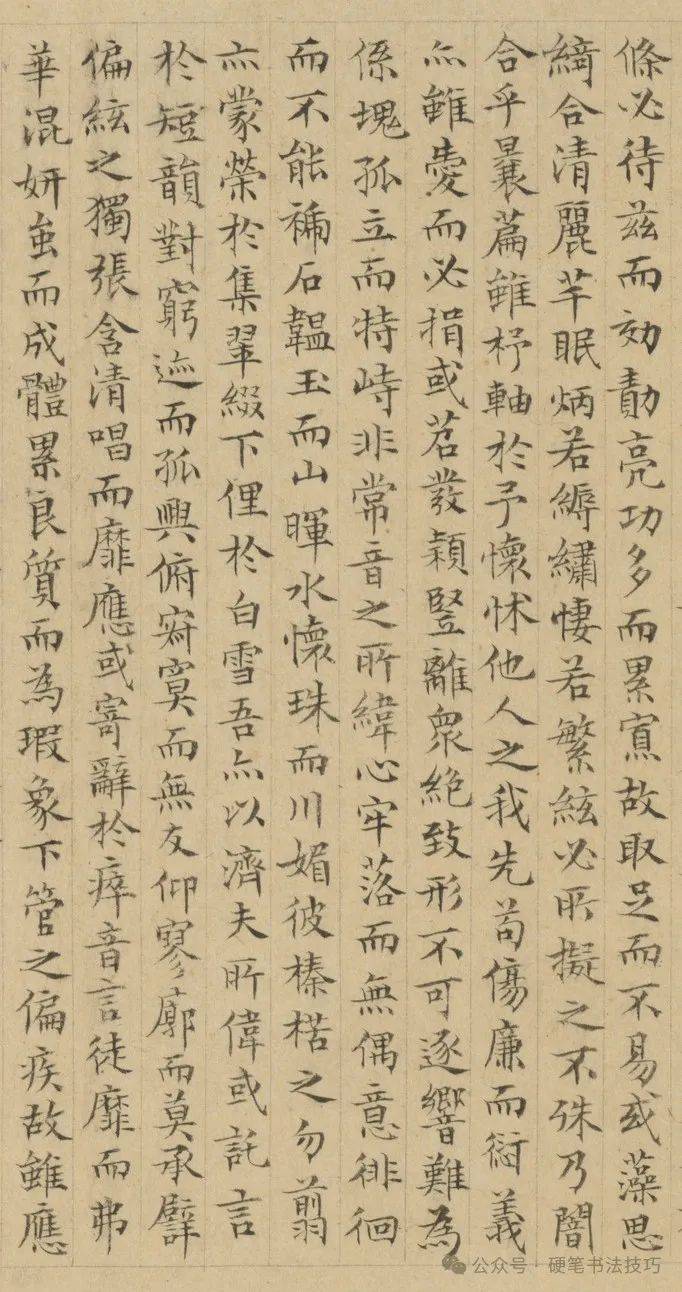 條必待茲而効勣亮功多而累寡故取足而不易或藻思
綺合清麗芊眠炳若縟繡悽若繁絃必所擬之不殊乃闇
合乎曩篇雖杼軸於予懷怵他人之我先苟傷廉而愆義
亦雖愛而必捐或苕發穎豎離衆絶致形不可逐響難為
係塊孤立而特峙非常音之所緯心牢落而無偶意徘徊
而不能褫石韞玉而山暉水懷珠而川媚彼榛楛之勿翦
亦蒙榮於集翠綴下俚於白雪吾亦以濟夫所偉或託言
於短韻對窮迹而孤興俯寂寞而無友仰寥廓而莫承譬
偏絃之獨張含清唱而靡應或寄辭於瘁音言徒靡而弗
華混妍蚩而成體累良質而為瑕象下管之偏疾故雖應
公众号·硬笔书法技巧